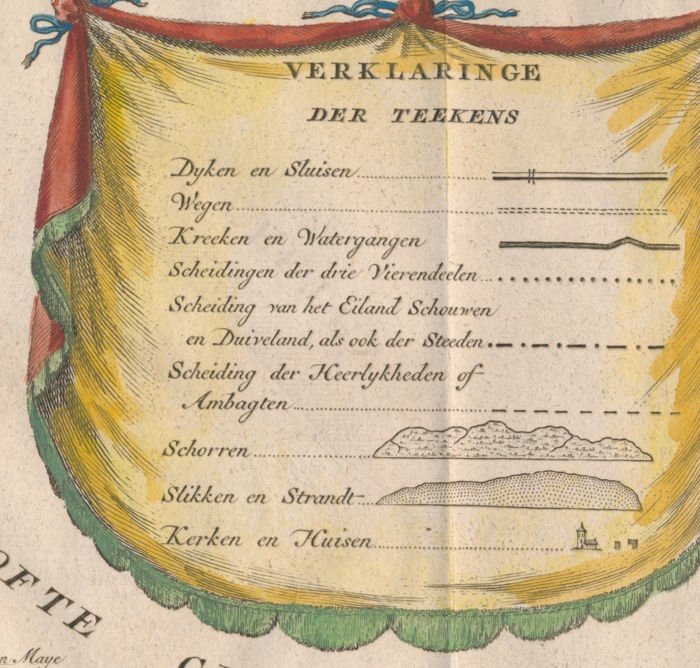 VERKLARINGE
DER TEEKENS
Dyken en Sluisen
Wegen
Kreeken en Watergangen
Scheidingen der drie Vierendeelen
Scheiding van het Eiland Schouwen
en Duiveland, als ook der Steeden
Scheiding der Heerlykheden of
Ambagten
Schorren
Slikken en Strandt
Kerken en Huisen
OFTE
Maye